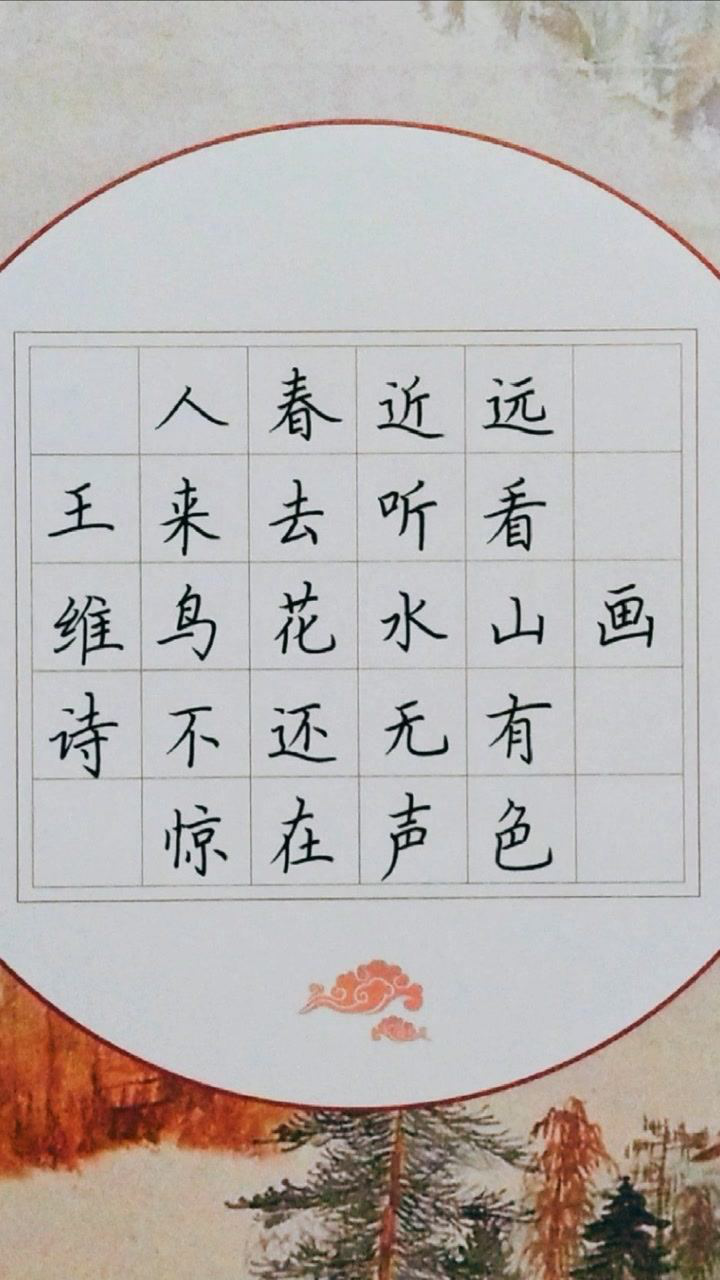 画
远看山有色
近听水无声
春去花还在
人来鸟不惊
王维诗